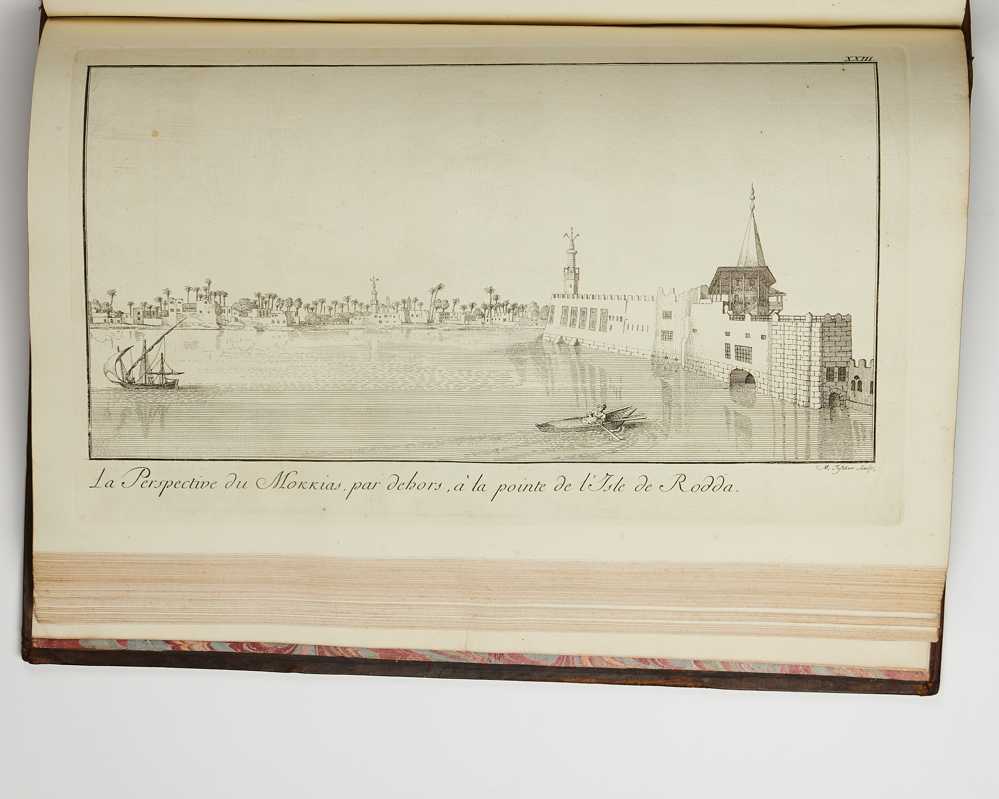 XXIII
M. Tÿscher Sculp.
La Perspective du Mokkias, par dehors, à la pointe de l'Isle de Rodda.